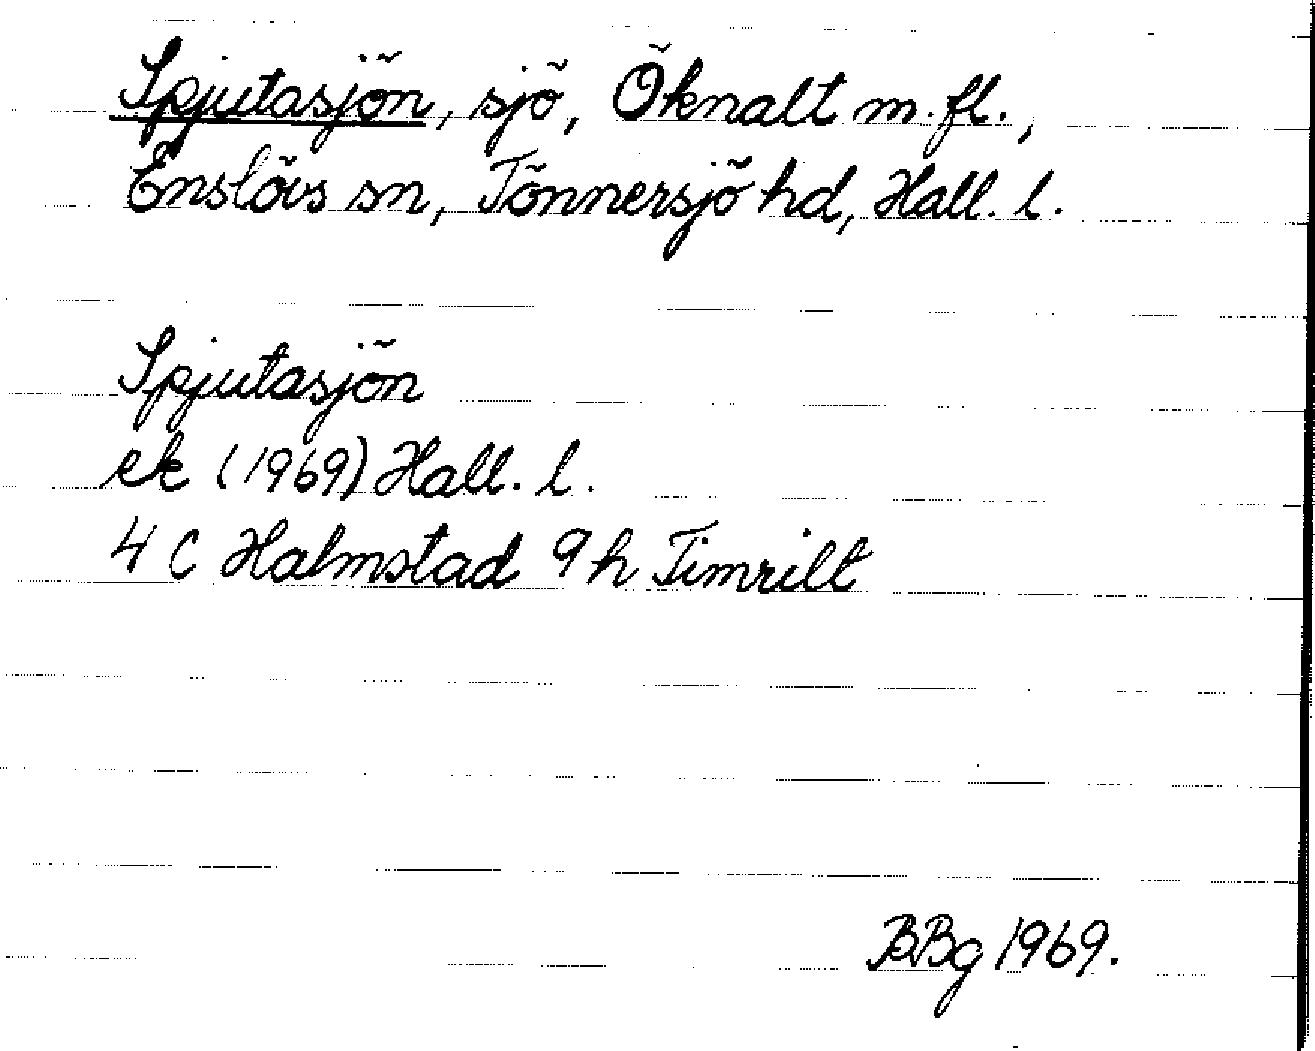 Spjutasjön, sjö, Öknalt m.fl.,
Enslövs sn, Tönnersjö hd, Hall. l.
Spjutasjön
ek (1969) Hall. l.
4 C Halmstad 9 h Timrilt
BBg 1969.